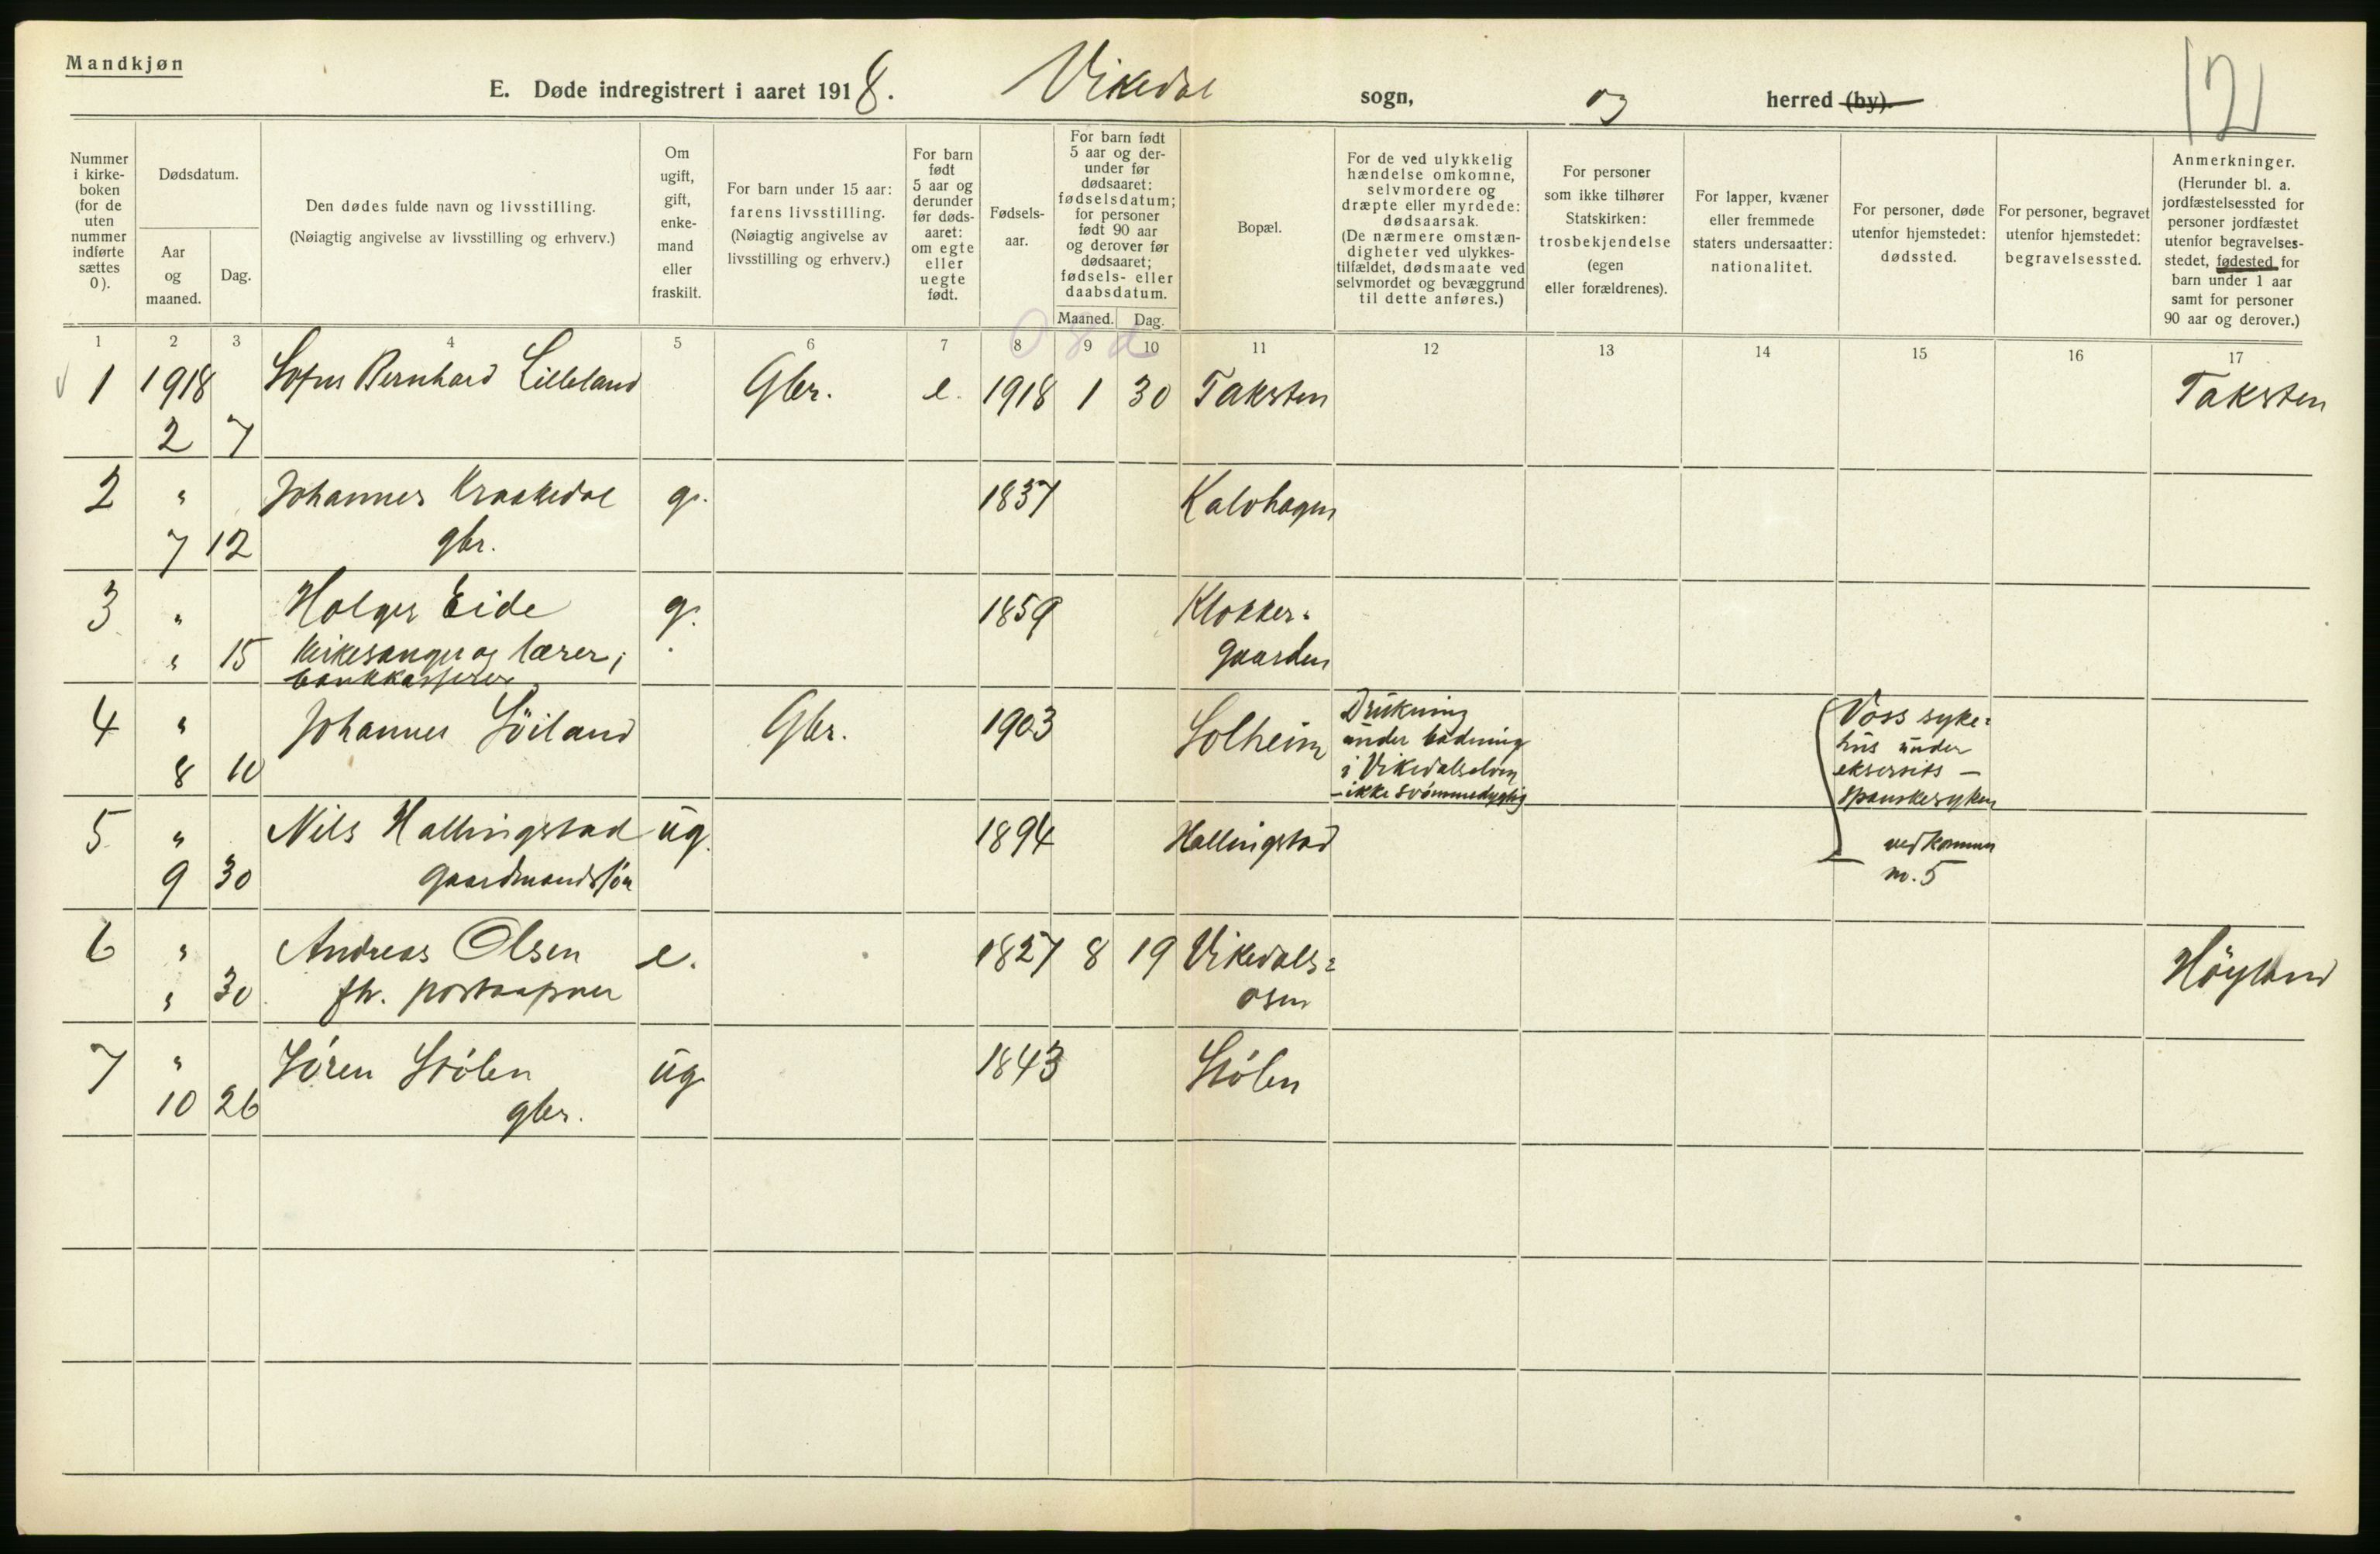 Mandkjøn
E. Døde indregistrert i aaret 1918. Vikedal sogn, og herred (by).
12
Nummer
i kirke-
boken
(for de
uten
nummer
indførte
sættes
0).
Dødsdatum.
Aar
og
maaned.
Dag.
Den dødes fulde navn og livsstilling.
(Nøiagtig angivelse av livsstilling og erhverv.)
Om
ugift,
gift,
enke-
mand
eller
fraskilt.
For barn under 15 aar:
farens livsstilling.
(Nøiagtig angivelse av
livsstilling og erhverv.)
For barn
født
5 aar og
derunder
før døds-
aaret:
om egte
eller
uegte
født.
Fødsels-
aar.
For barn født
5 aar og der-
under før
dødsaaret:
fødselsdatum;
for personer
født 90 aar
og derover før
dødsaaret;
fødsels- eller
daabsdatum.
Maaned. Dag.
Bopæl.
For de ved ulykkelig
hændelse omkomne,
selvmordere og
dræpte eller myrdede:
dødsaarsak.
(De nærmere omstæn-
digheter ved ulykkes-
tilfældet, dødsmaate ved
selvmordet og bevæggrund
til dette anføres.)
For personer
som ikke tilhører
Statskirken:
trosbekjendelse
(egen
eller forældrenes).
For lapper, kvæner
eller fremmede
staters undersaatter:
nationalitet.
For personer, døde
utenfor hjemstedet:
dødssted.
For personer, begravet
utenfor hjemstedet:
begravelsessted.
Anmerkninger.
(Herunder bl. a.
jordfæstelsessted for
personer jordfæstet
utenfor begravelses-
stedet, fødested for
barn under 1 aar
samt for personer
90 aar og derover.)
1 2 3 4 5 6 7 8 9 10 11 12 13 14 15 16 17
1 1918 Sofus Bernhard Lilleland Gbr. e. 1918 1 30 Taksten Taksten
2 7
2 " Johannes Kraakedal g. 1837 Kalvhagen
7 12 gbr.
3 " Holger Eide g. 1859 Klokker=
" 15 Kirkesanger og lærer; gaarden
bankkasserer
4 " Johannes Søiland Gbr. 1903 Solheim
8 10
Drukning
under badning
i Vikedalselven
- ikke svømmedygtig
Voss syke=
hus under
eksersits -
spanskesyken
vedkommer
nr. 5
5 " Nils Hallingstad ug. 1894 Hallingstad
9 30 gaardmandssøn
6 " Andreas Olsen e. 1827 8 19 Vikedals= Höyland
" 30 fh. postaapner osen
7 " Søren Stølen ug 1843 Stølen
10 26 gbr.